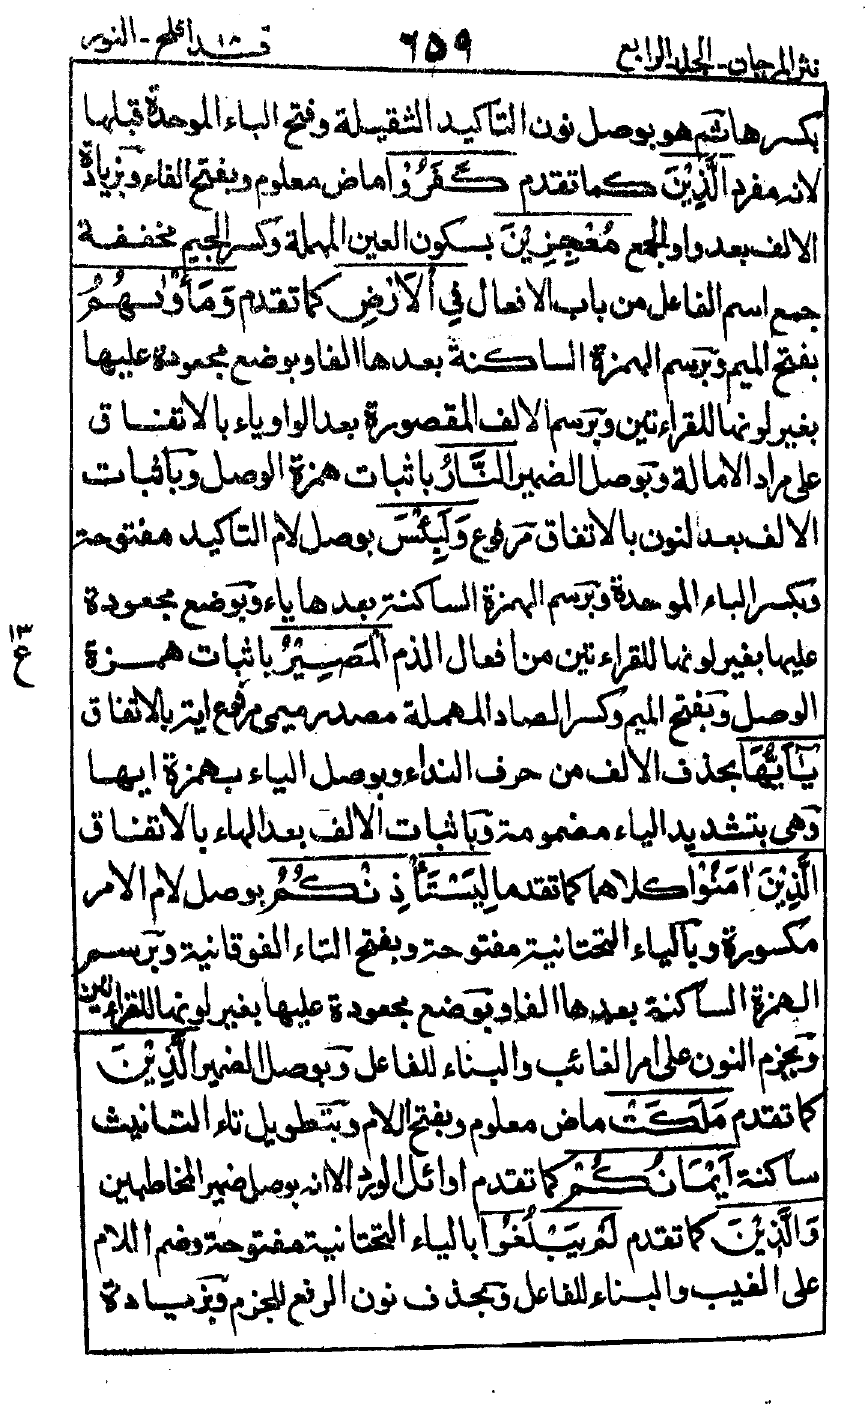 نثر المرجان - الجلد الرابع
٦٥٩
قد افلح ١٨ - النور
بكسرها ثم هو بوصل نون التاكيد الثقيلة وفتح الباء الموحدة قبلها
لانه مفرد الَّذِيْنَ كما تقدم كَفَرُوْا ماض معلوم وبفتح الفاء وبزيادة
الالف بعد واو الجمع مُعْجِزِيْنَ بسكون العين المهملة وكسر الجيم مخففة
جمع اسم الفاعل من باب الافعال فِي الْاَرْضِ كما تقدم وَمَأْوٰىهُمُ
بفتح الميم وبرسم الهمزة الساكنة بعدها الفا وبوضع مجعودة عليها
بغير لونها للقراءتين وبرسم الالف المقصورة بعد الواو ياء بالاتفاق
على مراد الامالة وبوصل الضمير النَّارُ باثبات همزة الوصل وباثبات
الالف بعد النون بالاتفاق مرفوع وَلَبِئْسَ بوصل لام التاكيد مفتوحة
وبكسر الباء الموحدة وبرسم الهمزة الساكنة بعدها ياء وبوضع مجعودة
عليها بغير لونها للقراءتين من افعال الذم الْمَصِيْرُ باثبات همزة
الوصل وبفتح الميم وكسر الصاد المهملة مصدر ميمى مرفوع ايضا بالاتفاق
١٣
ع
يٰٓاَيُّهَا بحذف الالف من حرف النداء وبوصل الياء بهمزة ايها
وهى بتشديد الياء مضمومة وباثبات الالف بعد الهاء بالاتفاق
الَّذِيْنَ اٰمَنُوْا كلاهما كما تقدما لِيَسْتَأْذِنْكُمُ بوصل لام الامر
مكسورة وبالياء التحتانية مفتوحة وبفتح التاء الفوقانية وبرسم
الهمزة الساكنة بعدها الفا وبوضع مجعودة عليها بغير لونها للقراءتين
وبجزم النون على امر الغائب والبناء للفاعل وبوصل الضمير الَّذِيْنَ
كما تقدم مَلَكَتْ ماض معلوم وبفتح اللام وبتطويل تاء التانيث
ساكنة اَيْمَانُكُمْ كما تقدم اوائل الورد الا انه بوصل ضمير المخاطبين
وَالَّذِيْنَ كما تقدم لَمْ يَبْلُغُوا بالياء التحتانية مفتوحة وضم اللام
على الغيب والبناء للفاعل وبحذف نون الرفع للجزم وبزيادة